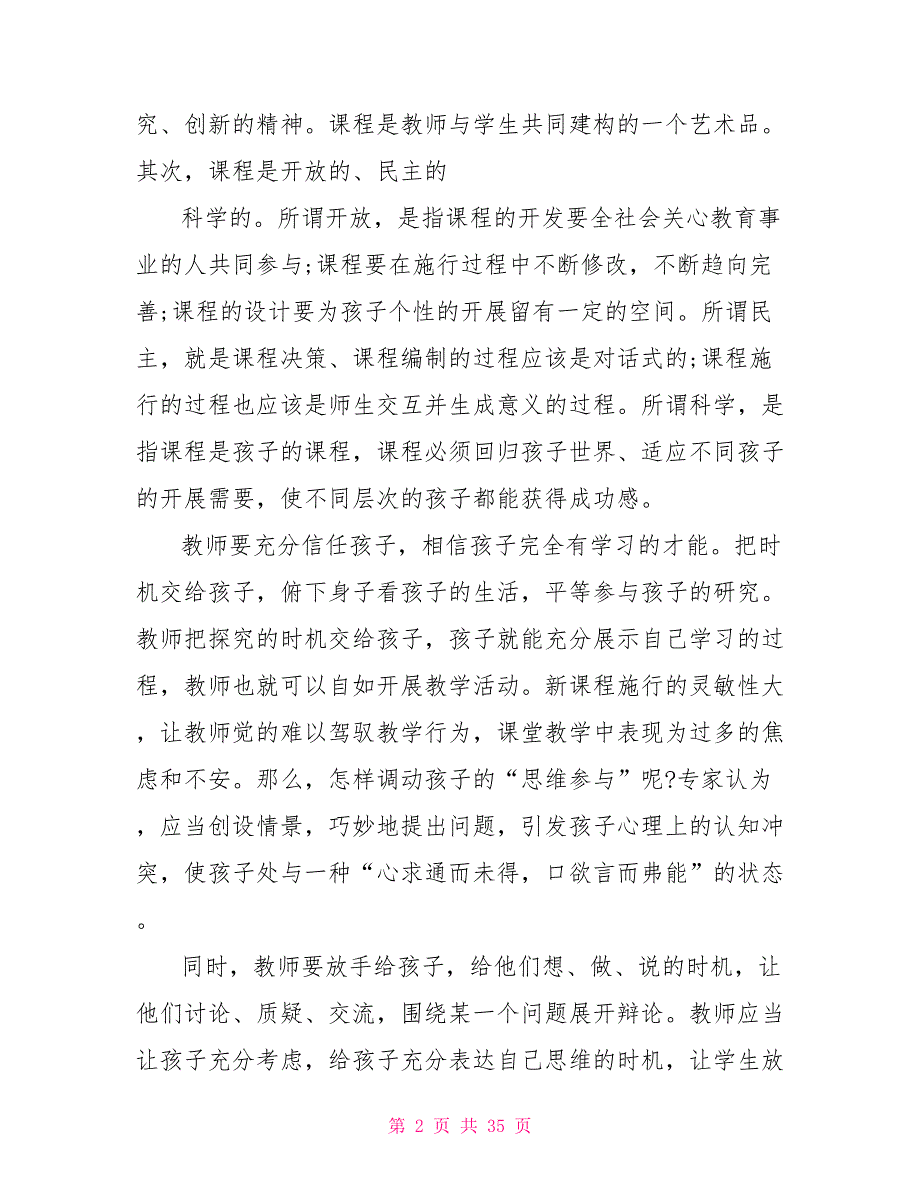 究、创新的精神。课程是教师与学生共同建构的一个艺术品。
其次，课程是开放的、民主的
科学的。所谓开放，是指课程的开发要全社会关心教育事
业的人共同参与;课程要在施行过程中不断修改，不断趋向完
善;课程的设计要为孩子个性的开展留有一定的空间。所谓民
主，就是课程决策、课程编制的过程应该是对话式的;课程施
行的过程也应该是师生交互并生成意义的过程。所谓科学，是
指课程是孩子的课程，课程必须回归孩子世界、适应不同孩子
的开展需要，使不同层次的孩子都能获得成功感。
教师要充分信任孩子，相信孩子完全有学习的才能。把时
机交给孩子，俯下身子看孩子的生活，平等参与孩子的研究。
教师把探究的时机交给孩子，孩子就能充分展示自己学习的过
程，教师也就可以自如开展教学活动。新课程施行的灵敏性大
，让教师觉的难以驾驭教学行为，课堂教学中表现为过多的焦
虑和不安。那么，怎样调动孩子的“思维参与”呢?专家认为
，应当创设情景，巧妙地提出问题，引发孩子心理上的认知冲
突，使孩子处与一种“心求通而未得，口欲言而弗能”的状态
。
同时，教师要放手给孩子，给他们想、做、说的时机，让
他们讨论、质疑、交流，围绕某一个问题展开辩论。教师应当
让孩子充分考虑，给孩子充分表达自己思维的时机，让学生放
第 2 页 共 35 页